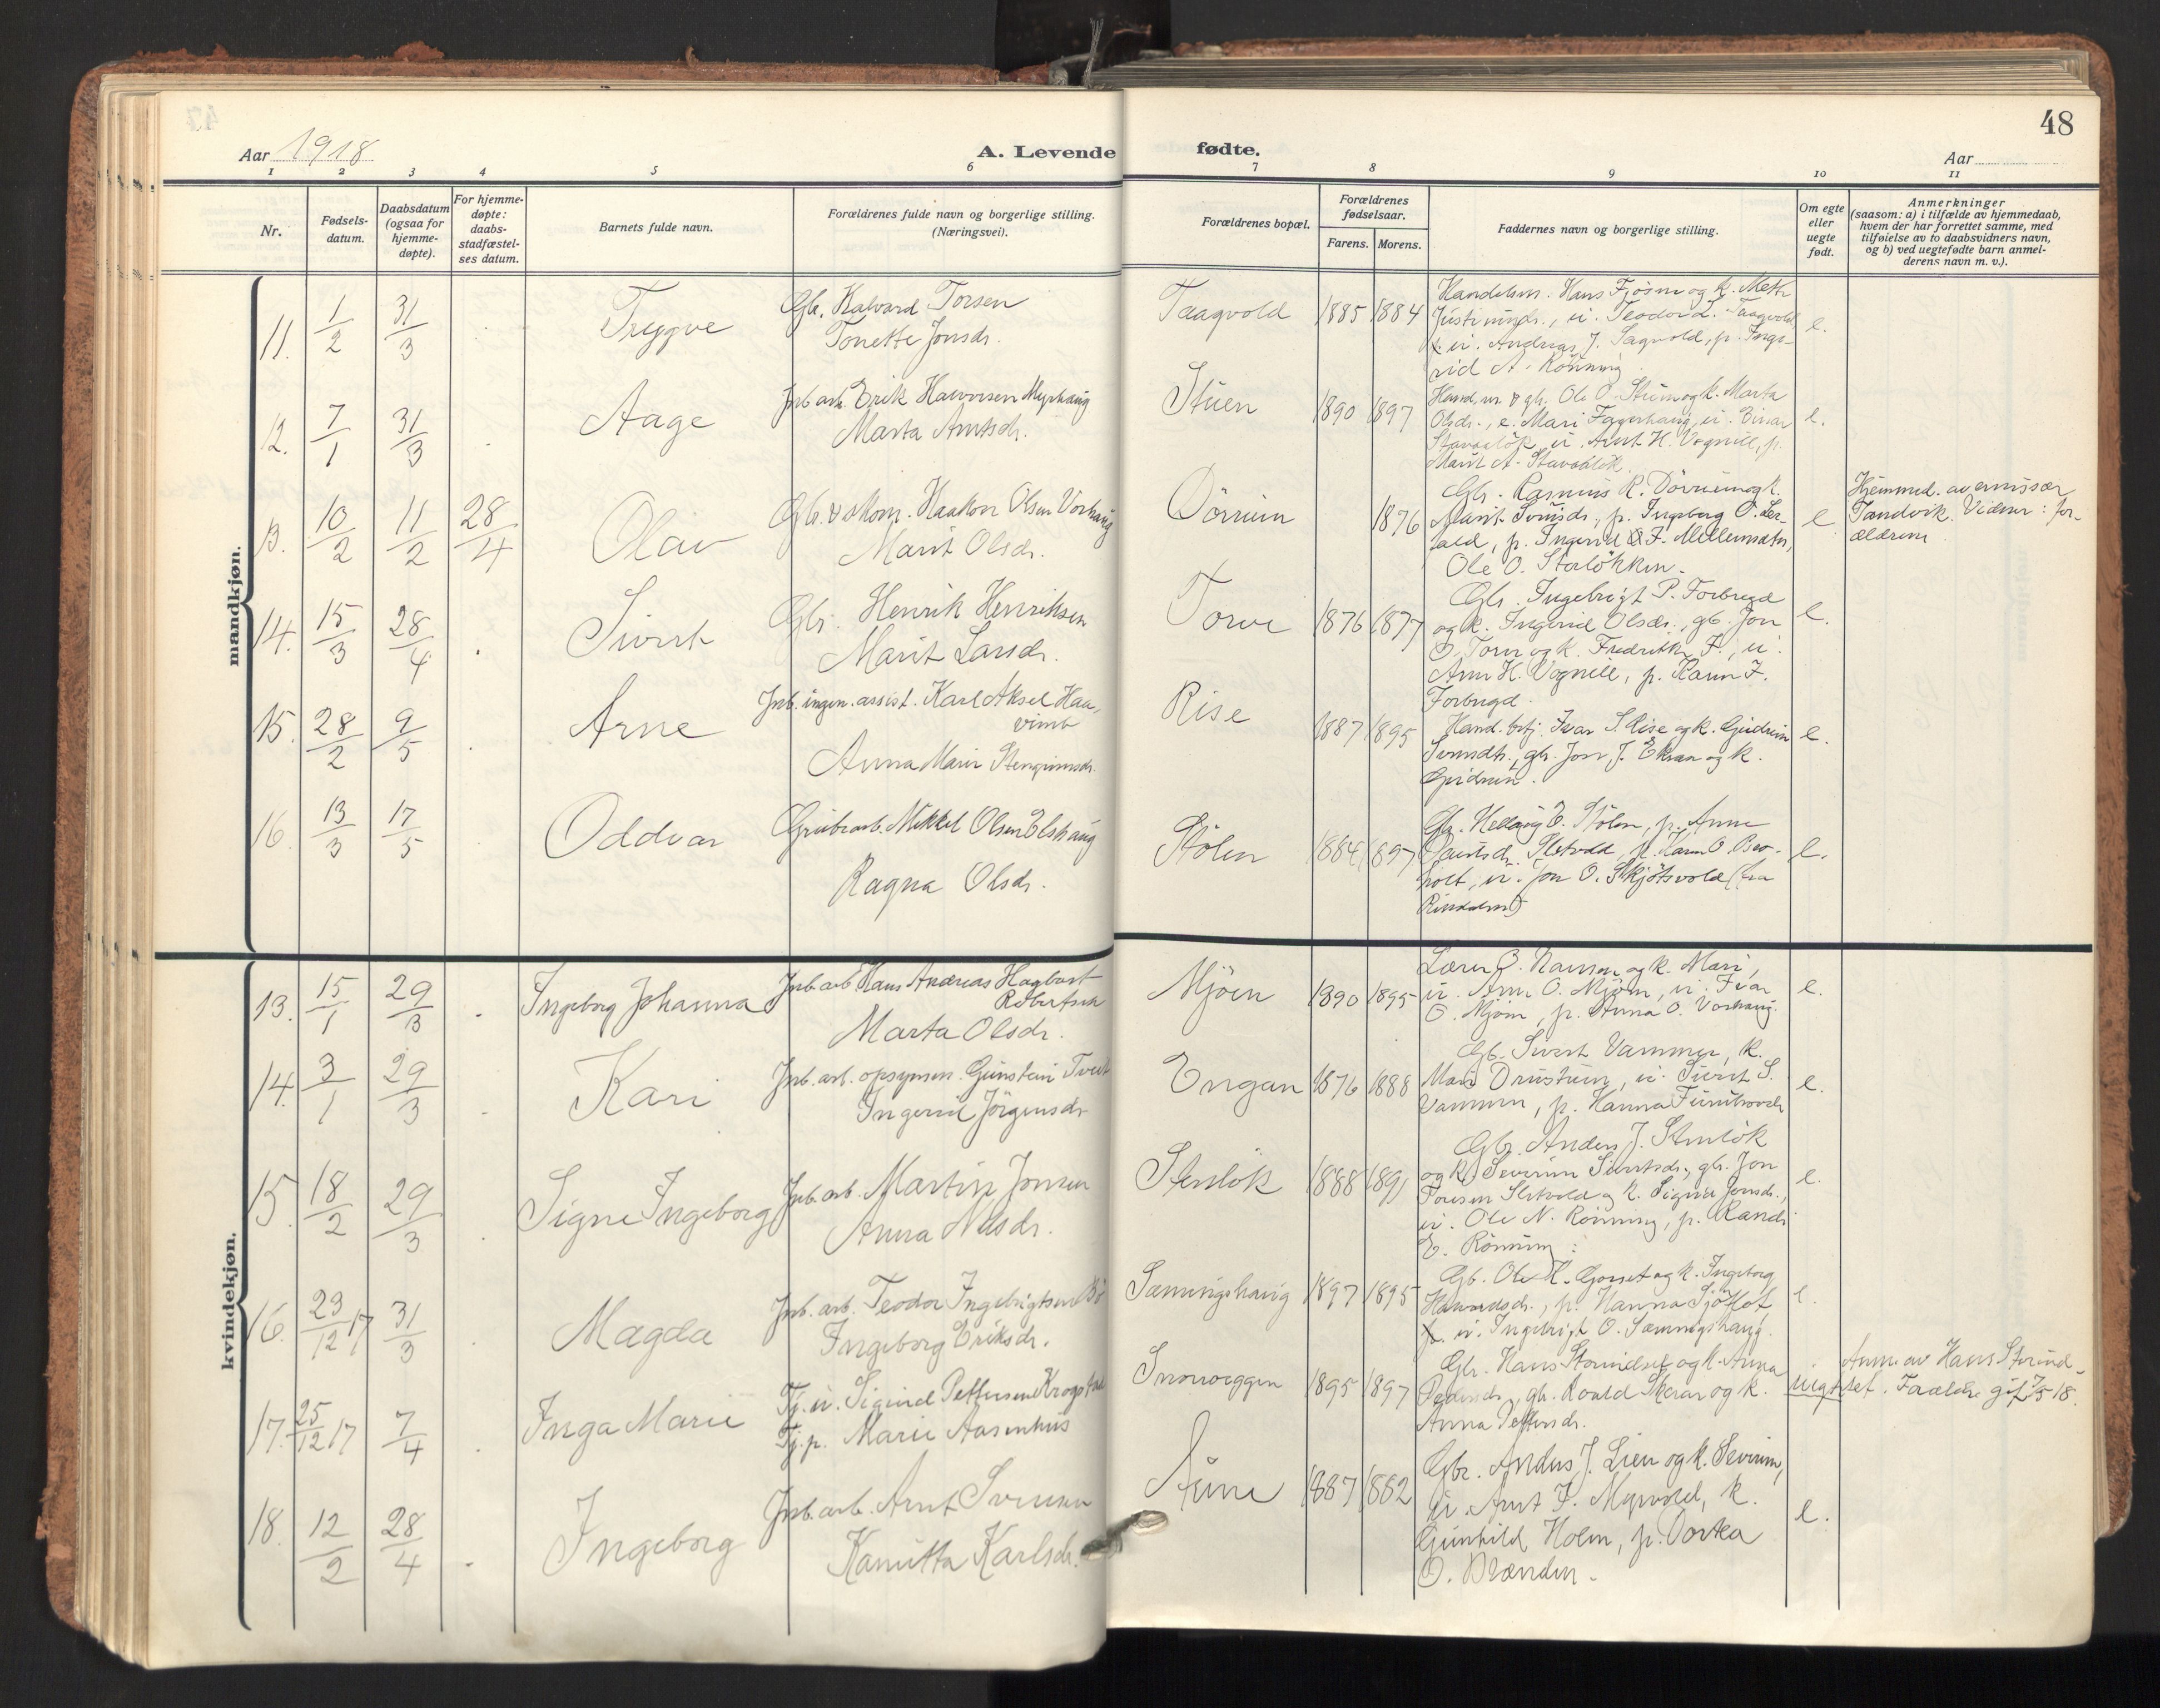 48
Aar 1918
A. Levende fødte.
Aar
1 2 3 4 5 6 7 8 9 10 11
Nr.
Fødsels-
datum.
Daabsdatum
(ogsaa for
hjemme-
døpte).
For hjemme-
døpte:
daabs-
stadfæstel-
ses datum.
Barnets fulde navn.
Forældrenes fulde navn og borgerlige stilling.
(Næringsvei).
Forældrenes bopæl.
Forældrenes
fødselsaar.
Farens. Morens.
Faddernes navn og borgerlige stilling.
Om egte
eller
uegte
født.
Anmerkninger
(saasom: a) i tilfælde av hjemmedaab,
hvem der har forrettet samme, med
tilføielse av to daabsvidners navn,
og b) ved uegtefødte barn anmel-
derens navn m. v.).
mandkjøn.
11. 1/2 31/3 Trygve
Gbr. Halvard Torsen
Tonette Jonsdr.
Taagvold 1885 1884
Handelsm. Hans Fjøsne og k. Mette
Justinusdr., u. Teodor L. Taagvold,
u. Andreas J. Sagvold, p. Inge-
rid A. Rönning
e.
12. 7/1 31/3 Aage
Jnb. arb. Erik Halvorsen Myrhaug
Marta Arntsdr.
Stuen 1890 1897
Hand.m. & gb. Ole O. Stuen og k. Marta
Olsdr., e. Mari Fagerhaug, u. Einar
Stavaslök, u. Arnt H. Vognill, p.
Marit A. Stavaslök.
e.
13. 10/2 11/2 28/4 Olav
Gbr. & skom. Haakon Olsen Vorhaug
Marit Olsdr.
Dörrum 1876
Gbr. Rasmus R. Dörrum og k.
Marit Sivertsdr., p. Ingeborg O.
p. Ingerid F. Mellemsæter,
Ole O. Storlökken.
e
Hjemmed. av emissær
Tandvik. Vidner: for-
ældrene
14. 15/3 28/4 Sivert
Gbr. Henrik Henriksen
Marit Larsdr.
Torve 1876 1877
Gbr. Ingebrigt P. Forbregd
og k. Ingerid Olsdr., gb. Jon
O. Torve og k. Fredrikke F., u.
Arne H. Vognill, p. Karen F.
Forbregd.
e.
15. 28/2 9/5 Arne
Jnb. ingen. assist. Karl Aksel Haa-
vimb
Anna Marie Stengrimsdr.
Rise 1887 1895
Hand. betj. Ivar S. Rise og k. Gudrun
Svensdtr., gb. Jon J. Ekran og k.
Gudrun.
e.
16. 13/3 17/5 Oddvar
Grubearb. Mikkel Olsen Elshaug
Ragna Olsdr.
Stölen 1884 1897
Gbr. Hellaug E. Stölen, p. Anne
Sletvold, p. Karen O. Bro-
holt, u. Jon O. Skjötsvold (fra
Rindalen)
e.
kvindekjøn.
13. 15/1 29/3 Ingeborg Johanna
Jnb. arb. Hans Andreas Hagbart
Robertsen
Marta Olsdr.
Mjöen 1890 1895
Lærer O. Hansen og k. Mari,
u. Arne O. Mjöen, u. Ivar
O. Mjöen, p. Anna O. Vorhaug.
e.
14. 3/1 29/3 Kari
Jnb. arb. opsynsm. Gunstein Tveit
Ingerid Jörgensdr.
Engan 1876 1888
Gb. Sivert Vammen, k.
Mari Drustuen, u. Sivert S.
Vammen, p. Hanna Furuhovde
e.
15. 18/2 29/3 Signe Ingeborg
Jnb. arb. Martin Jonsen
Anna Nilsdr.
Stenlök 1888 1891
Gbr. Anders J. Stenlök
og k. Severine Sivertsdr., gb. Jon
Toresen Sletvold og k. Sigrid Jonsdr.,
u. Ole N. Rönning, p. Randi
E. Rönning.
e.
16. 23/12 17 31/3 Magda
Jnb. arb. Teodor Ingebrigtsen Bö
Ingeborg Eriksdr.
Sæmingshaug 1897 1895
Gb. Ole H. Gorset og k. Ingeborg
Halvardsdr., p. Hanna Sjöflot,
u. Ingebrigt O. Sæmingshaug
e.
17. 25/12 17 7/4 Inga Marie
Tj. u. Sigurd Pettersen Krogstad
Tj. p. Marie Aasenhus
Snoveggen 1895 1897
Gbr. Hans Storindset og k. Anna
Pedersdr., gb. Roald Skerar og k.
Anna Pettersdr.
uegte
Anm. av Hans Storind-
set. Forældre gift 7/5 18.
18. 12/2 28/4 Ingeborg
Jnb. arb. Arnt Svensen
Kanutta Karlsdr.
Aune 1887 1882
Gbr. Anders J. Lien og k. Severine,
u. Arnt F. Myrvold, k.
Gunhild Holm, p. Dortea
O. Brænden.
e.